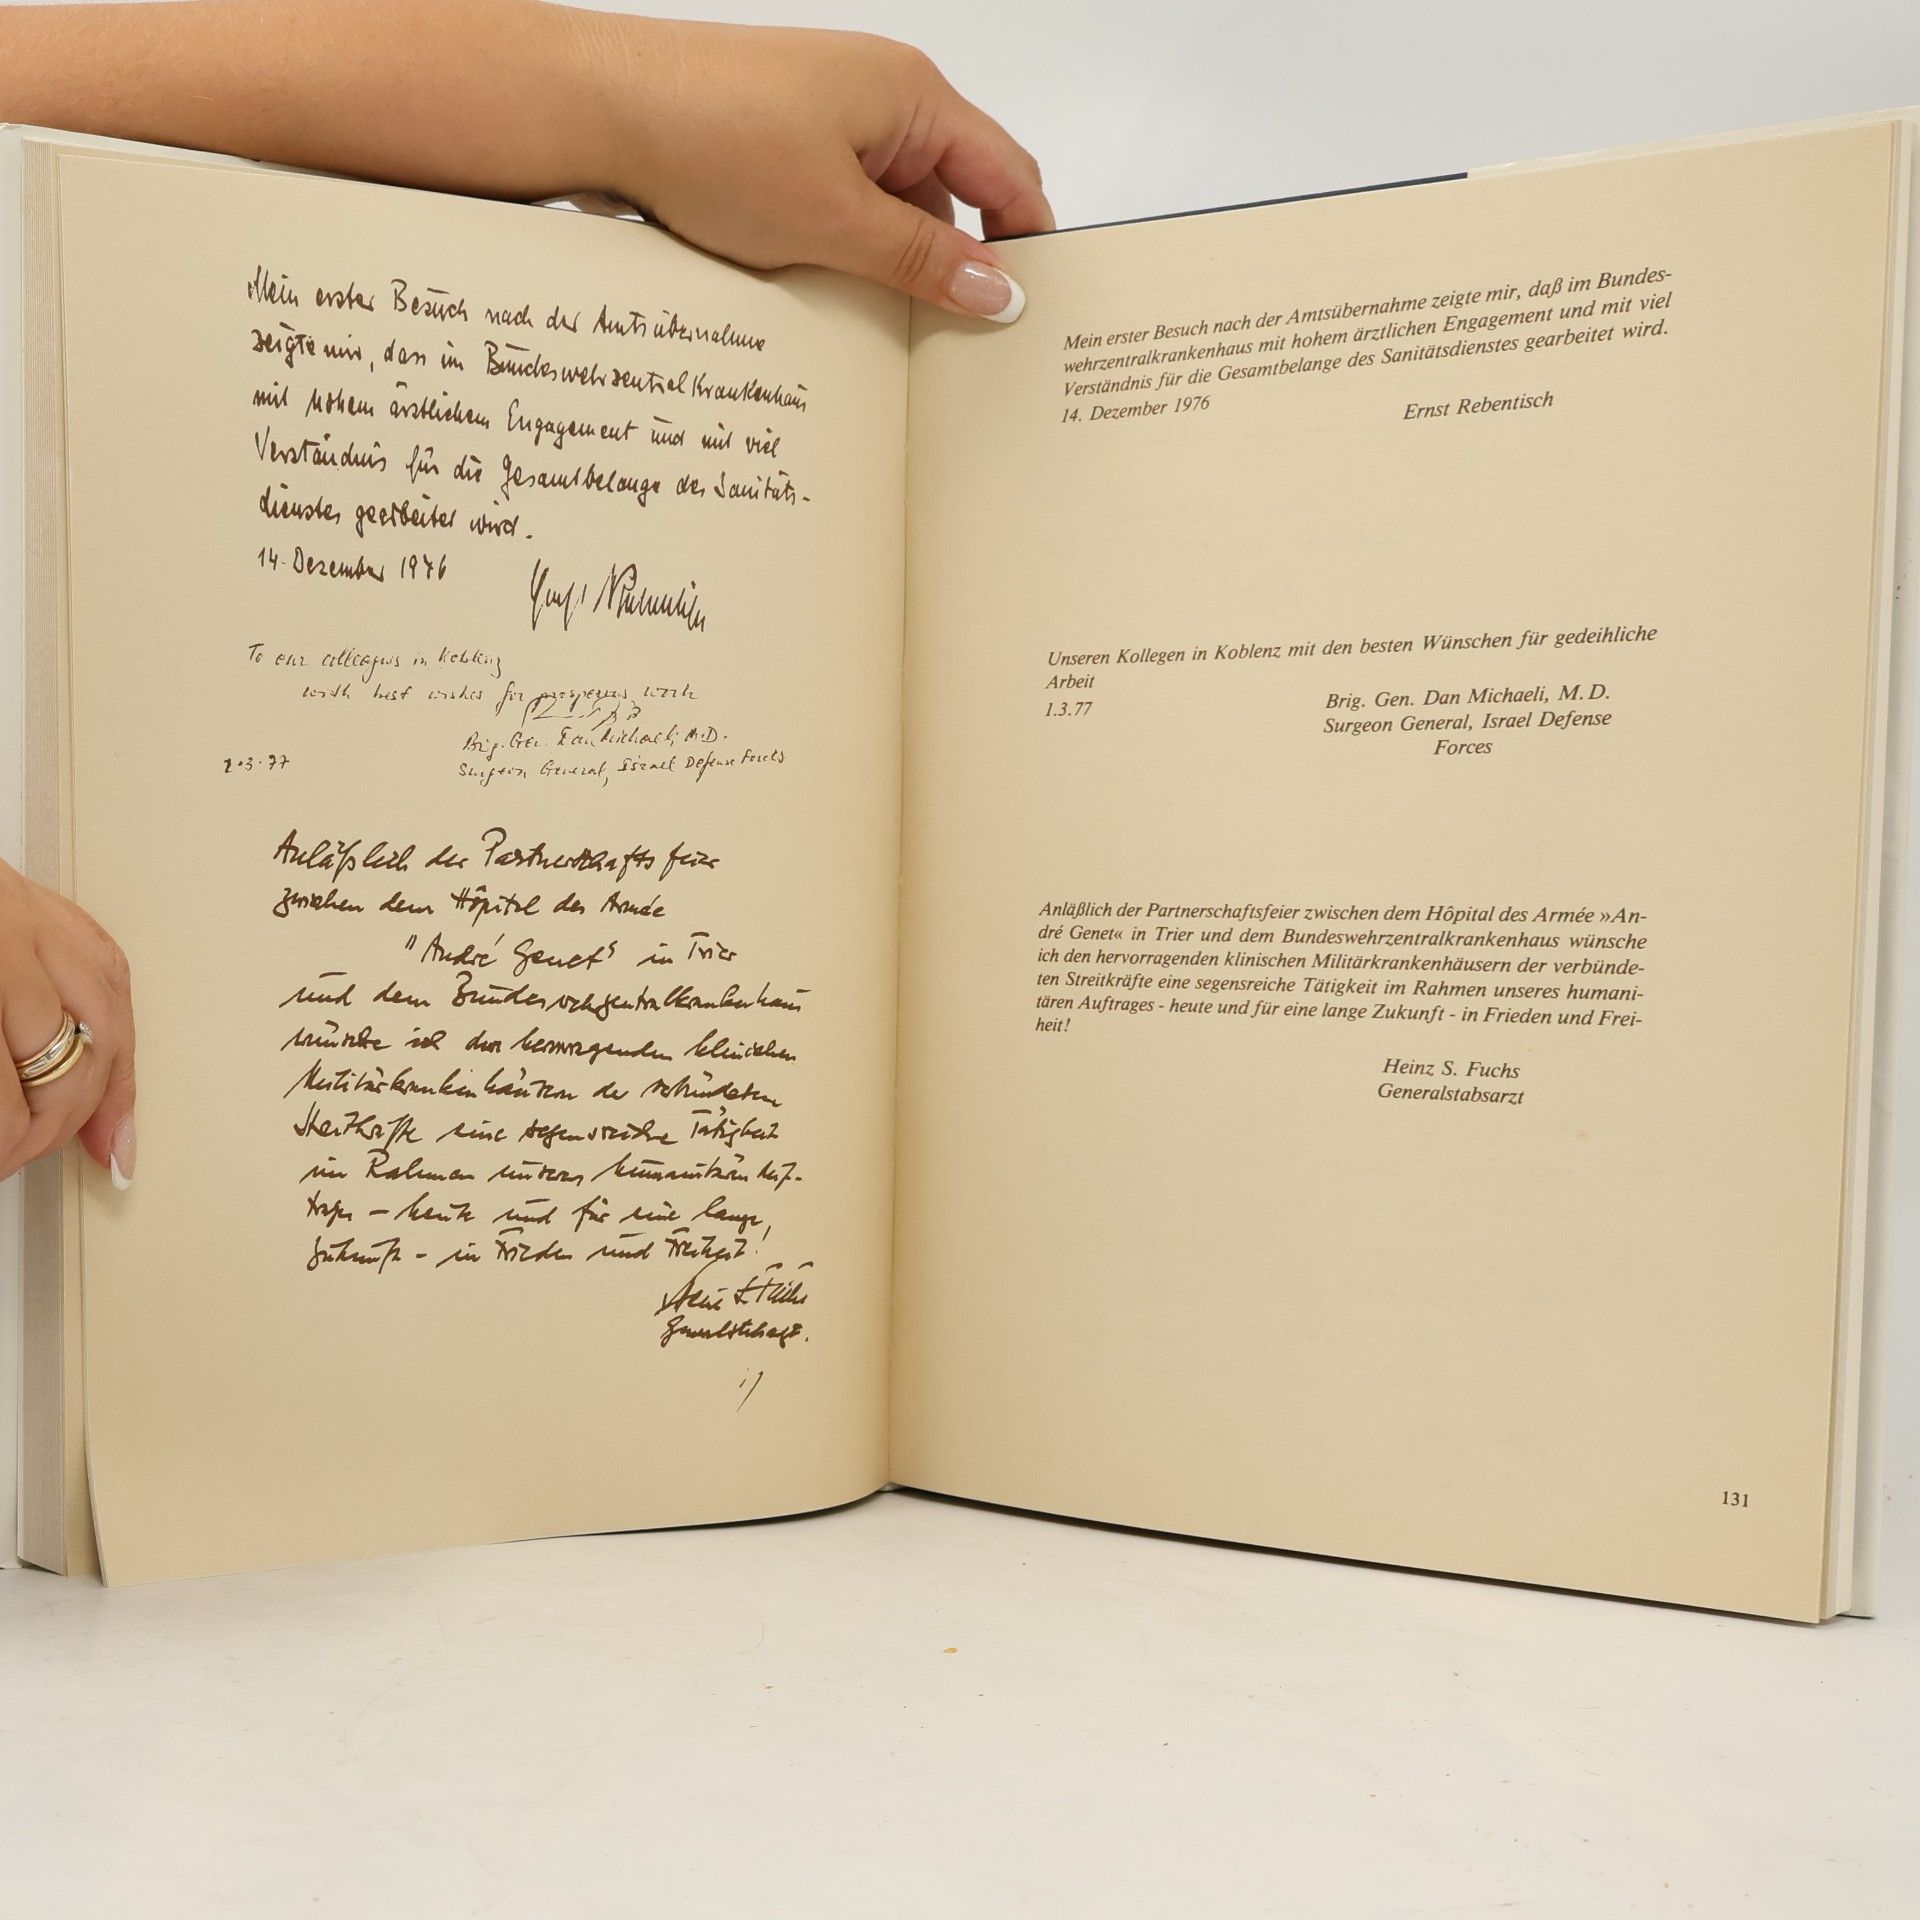 Mein erster Besuch nach der Amtsübernahme
zeigte mir, dass im Bundeswehrzentralkrankenhaus
mit hohem ärztlichem Engagement und mit viel
Verständnis für die Gesamtbelange des Sanitäts-
dienstes gearbeitet wird.
14. Dezember 1976
Ernst Rebentisch
To our colleagues in Koblenz
with best wishes for prosperous work
Brig. Gen. Dan Michaeli, M.D.
1.3.77
Surgeon General, Israel Defense Forces
Anläßlich der Partnerschaftsfeier
zwischen dem Hôpital des Armée
"André Genet" in Trier
und dem Bundeswehrzentralkrankenhaus
wünsche ich den hervorragenden klinischen
Militärkrankenhäusern der verbündeten
Streitkräfte eine segensreiche Tätigkeit
im Rahmen unseres humanitären Auf-
trages – heute und für eine lange
Zukunft – in Frieden und Freiheit!
Heinz S. Fuchs
Generalstabsarzt.
Mein erster Besuch nach der Amtsübernahme zeigte mir, daß im Bundes-
wehrzentralkrankenhaus mit hohem ärztlichen Engagement und mit viel
Verständnis für die Gesamtbelange des Sanitätsdienstes gearbeitet wird.
14. Dezember 1976
Ernst Rebentisch
Unseren Kollegen in Koblenz mit den besten Wünschen für gedeihliche
Arbeit
1.3.77
Brig. Gen. Dan Michaeli, M. D.
Surgeon General, Israel Defense
Forces
Anläßlich der Partnerschaftsfeier zwischen dem Hôpital des Armée »An-
dré Genet« in Trier und dem Bundeswehrzentralkrankenhaus wünsche
ich den hervorragenden klinischen Militärkrankenhäusern der verbünde-
ten Streitkräfte eine segensreiche Tätigkeit im Rahmen unseres humani-
tären Auftrages - heute und für eine lange Zukunft - in Frieden und Frei-
heit!
Heinz S. Fuchs
Generalstabsarzt
131